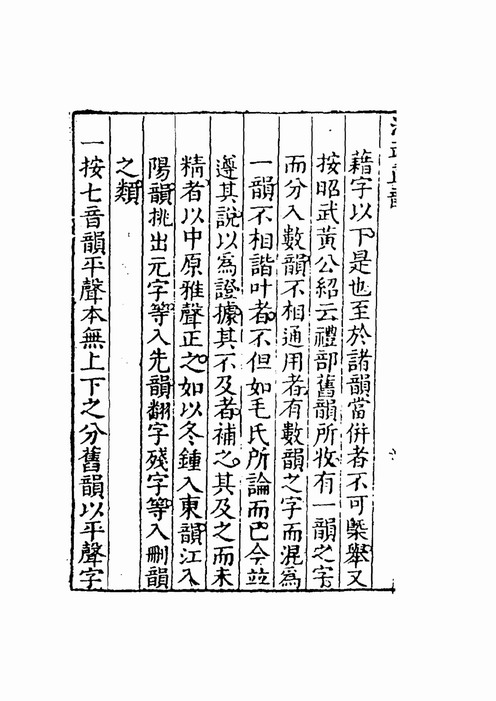 洪武正韻
藉字以下是也至於諸韻當併者不可槩舉又
按昭武黃公紹云禮部舊韻所收有一韻之字
而分入數韻不相通用者有數韻之字而混爲
一韻不相諧叶者不但如毛氏所論而已今竝
遵其說以爲證據其不及者補之其及之而未
精者以中原雅聲正之如以冬鍾入東韻江入
陽韻挑出元字等入先韻翻字殘字等入刪韻
之類
一按七音韻平聲本無上下之分舊韻以平聲字